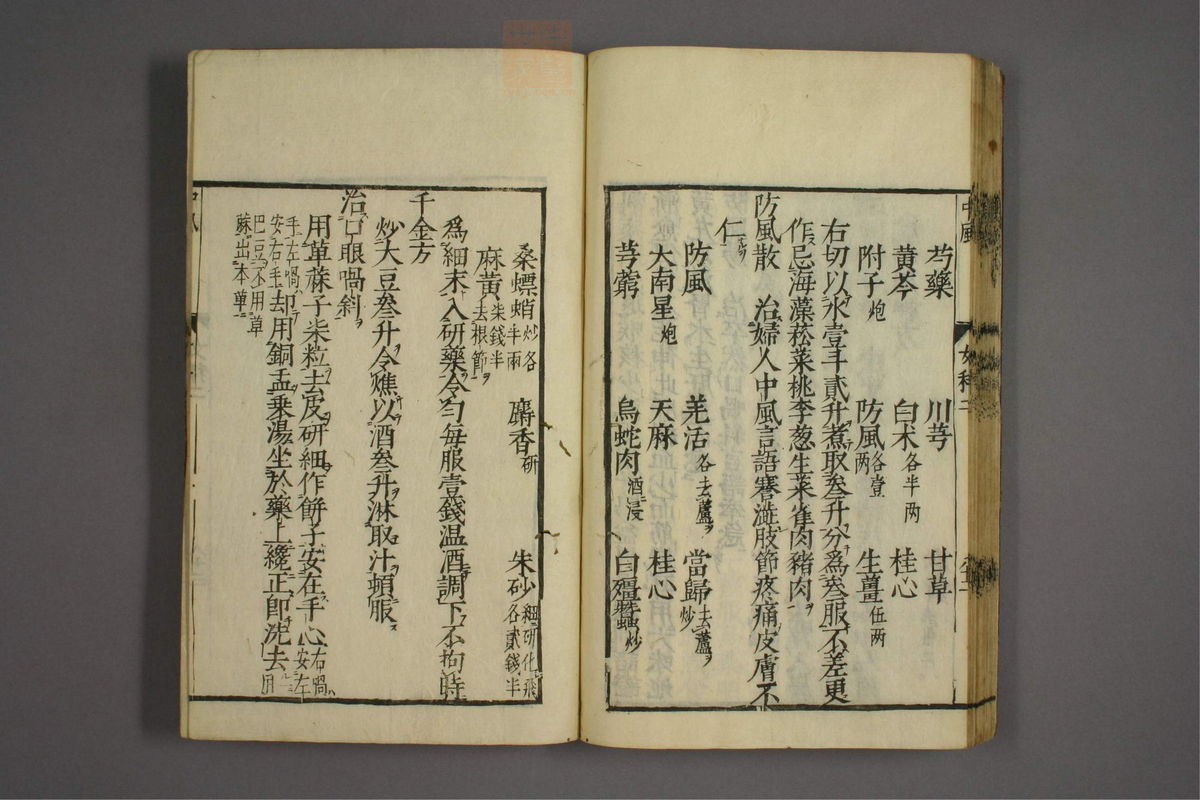 中風
芍藥 川芎 甘草
黃芩 白术各半両 桂心
附子炮 防風各壹両 生薑伍両
右切以水壹斗貳升煮取叄升分爲叄服不差更
作忌海藻菘菜桃李葱生菜雀肉豬肉
防風散 治婦人中風言語謇澁肢節疼痛皮膚不
仁
防風 羌活各去蘆 當歸去蘆炒
大南星炮 天麻 桂心
芎藭 烏蛇肉酒浸 白殭蠶炒
桑螵蛸炒各半両 麝香研 朱砂細研化飛各貳錢半
麻黃去根節柒錢半
爲細末入研藥令勻每服壹錢温酒調下不拘時
千金方
炒大豆叄升令燋以酒叄升淋取汁頓服
治口眼喎斜
用萆蔴子柒粒去皮研細作餅子安在手心右喎安左手左喎安右手却用銅盂乗湯坐於藥上纔正即洗去用巴豆不用萆蔴出本草